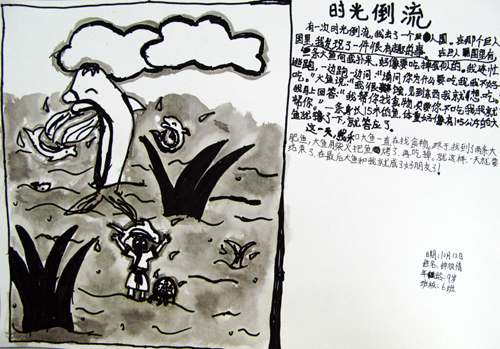 时光倒流
有一次时光倒流,我出了一个巨人国。在那个巨人
国里,我发现了一件很有趣的事。在巨人国里有
一条大鱼向我扑来,好像要吃掉我似的。我连忙
逃跑,一边跑一边问:“请问你为什么要吃我,我不好
吃。”大鱼说:“我很
我马上回答:“我帮你找食物,只要你不吃我,我就
帮你。”一条身长15米的鱼,体重好像有15公斤的大
鱼就懂了一下,就答应了。
这一天,我和大鱼一直在找食物,终于找到了两条大
肥鱼,大鱼用柴火把鱼烤了,再吃掉。就这样一天就要
结束了,在最后大鱼和我就成了好朋友了!
日期:10月12日
姓名:
年龄:9岁
班级:6班